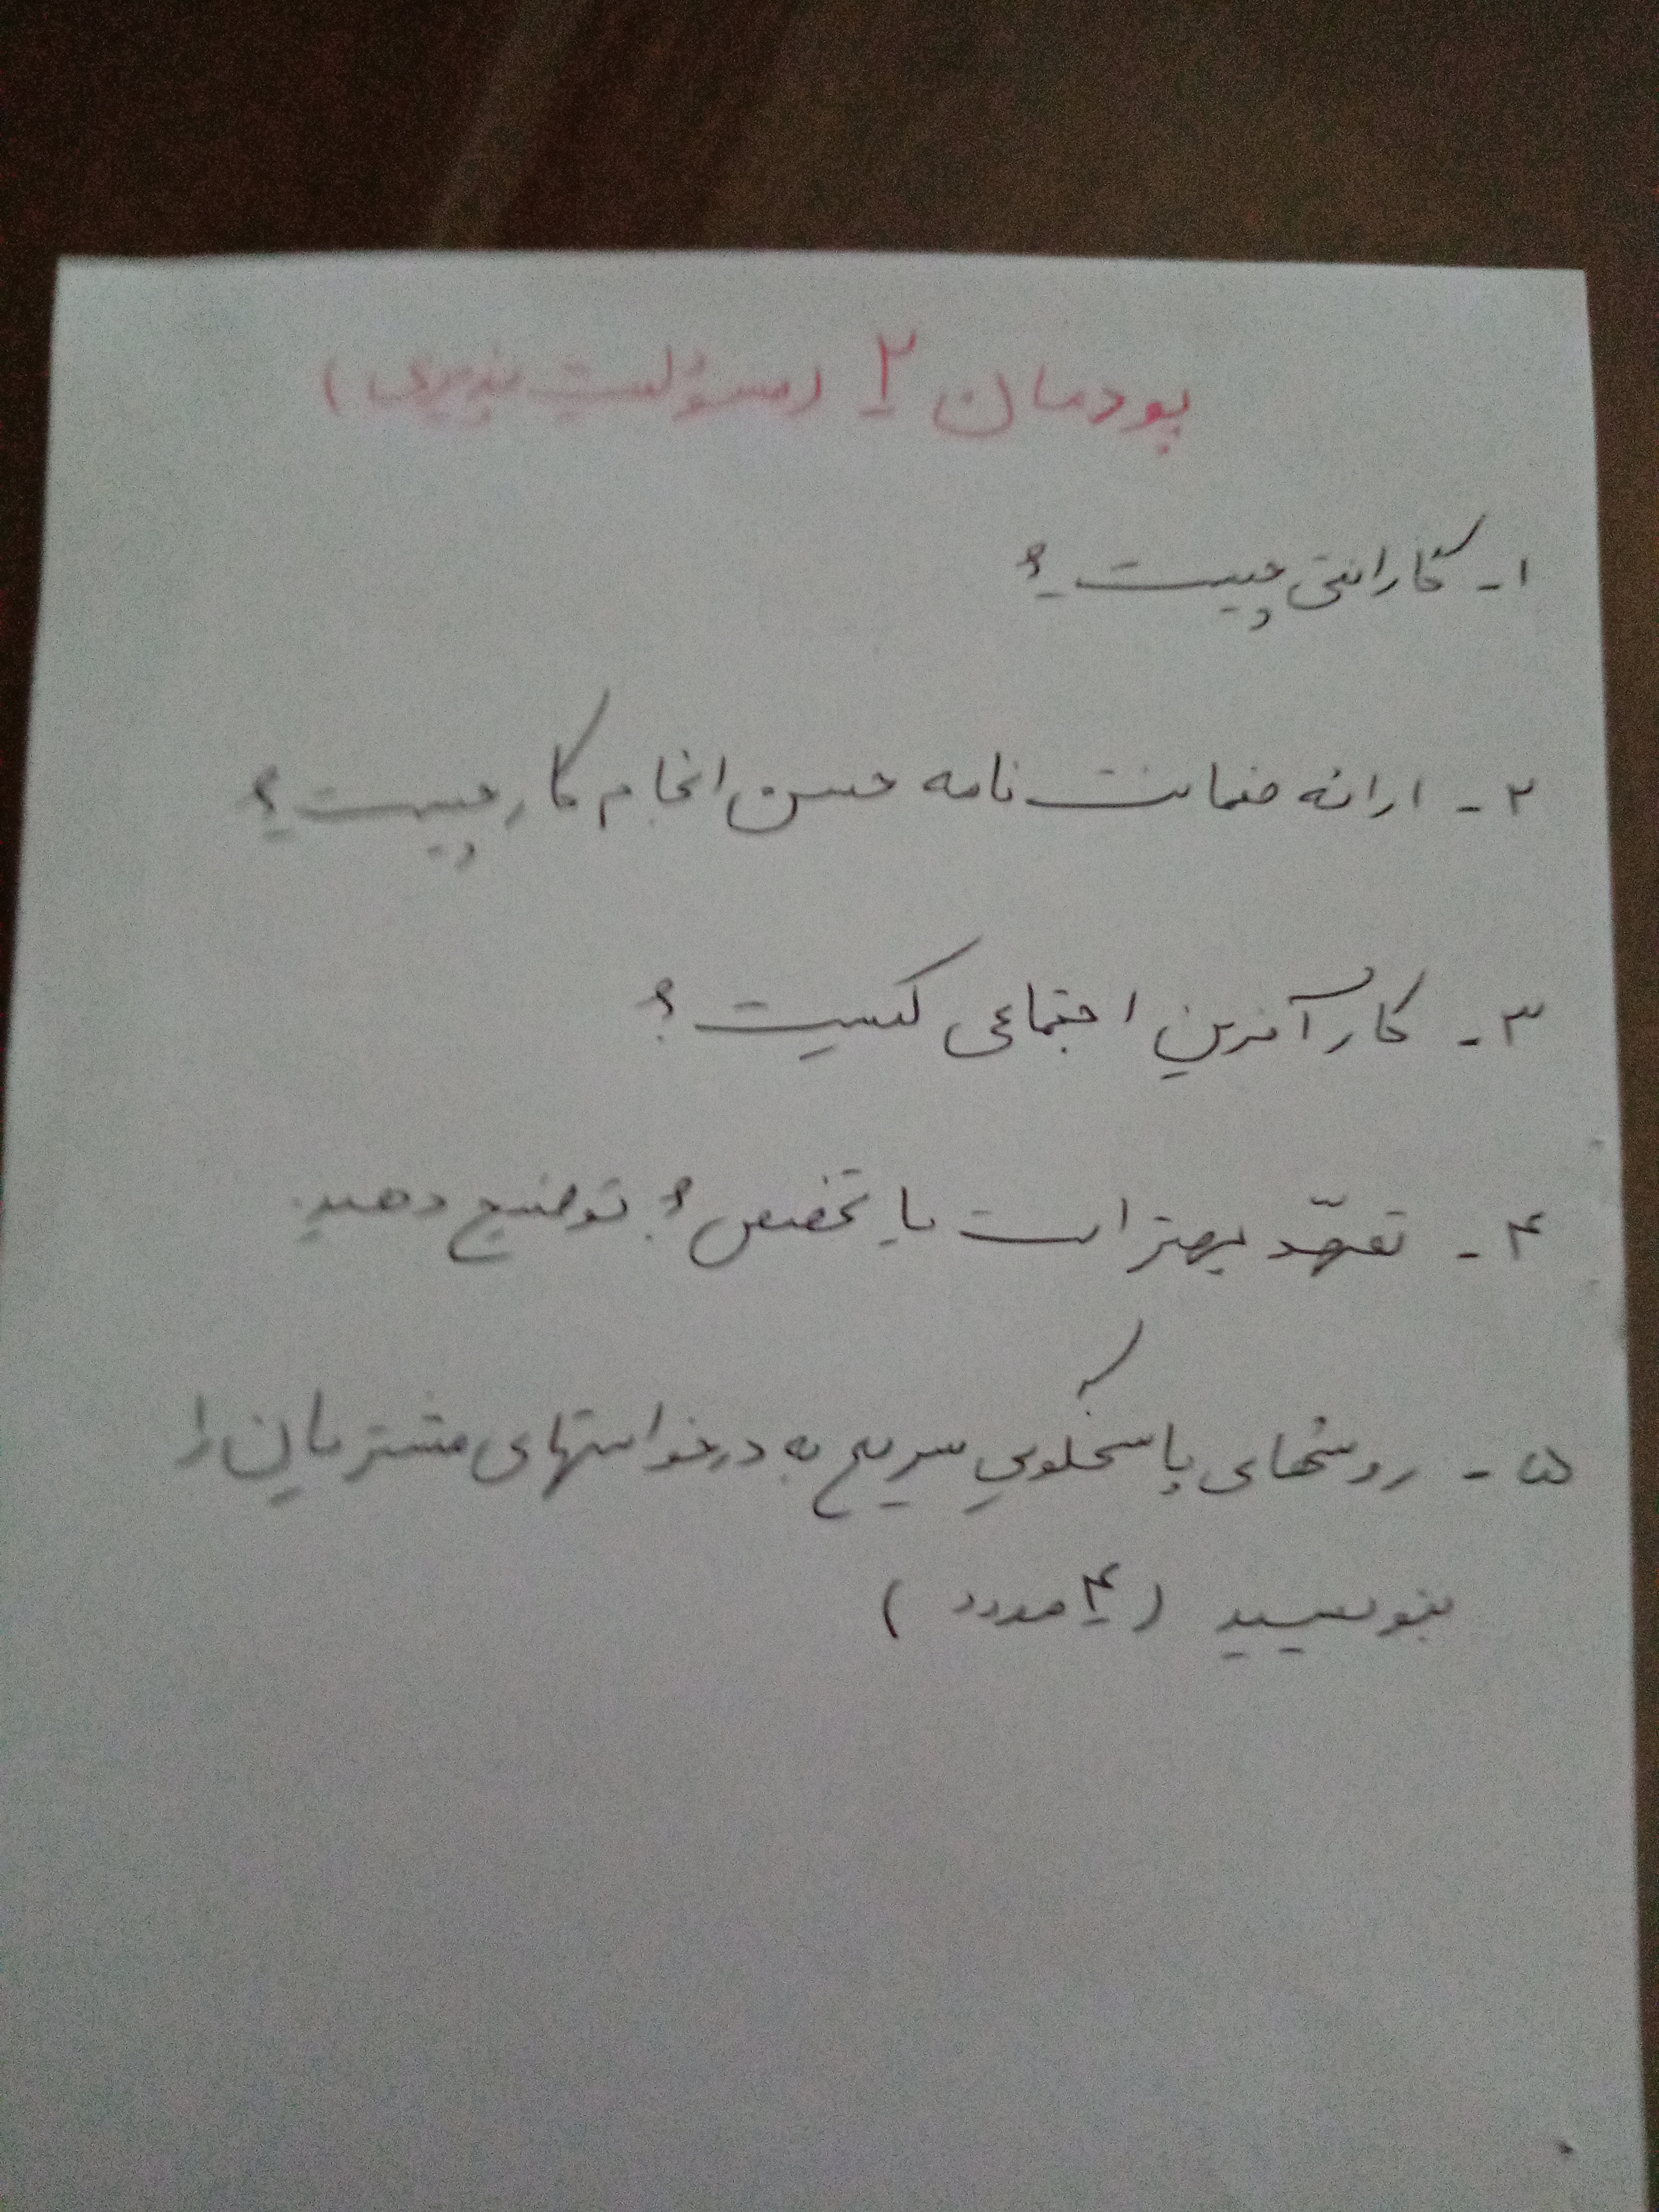 پودمان ۲ (مسئولیت پذیری)
۱- گارانتی چیست؟
۲- ارائه ضمانت نامه حسن انجام کار چیست؟
۳- کارآفرین اجتماعی کیست؟
۴- تعهّد بهتر است یا تخصص؟ توضیح دهید.
۵- روشهای پاسخگویی سریع به درخواستهای مشتریان را
بنویسید (۴ مورد)